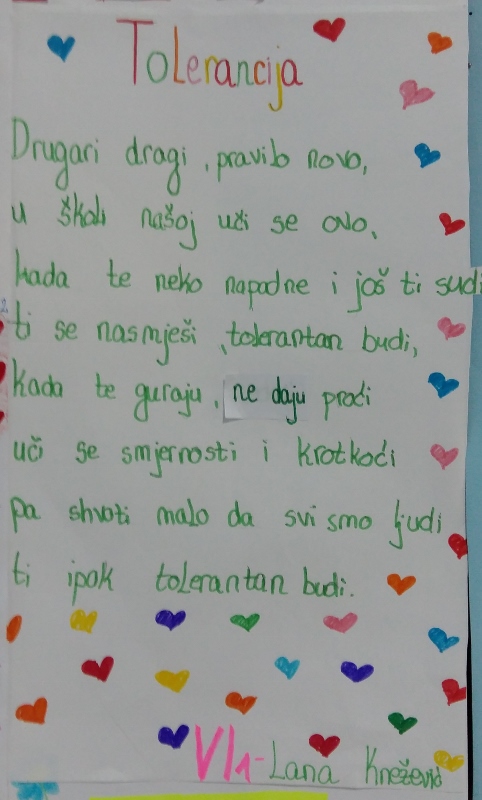 Tolerancija
Drugari dragi, pravilo novo,
u školi našoj uči se ovo,
kada te neko napadne i još ti sudi
ti se nasmješi, tolerantan budi,
kada te guraju, ne daju proći
uči se smjernosti i krotkoći
pa shvati malo da svi smo ljudi
ti ipak tolerantan budi.
VI1-Lana Knežević